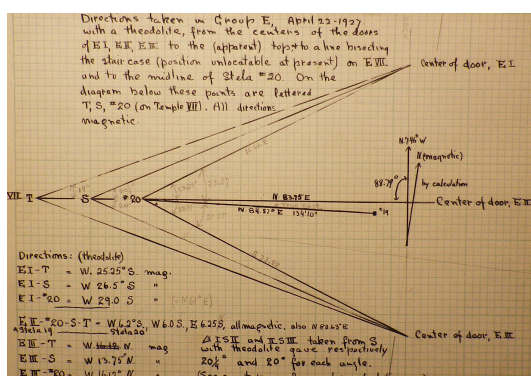 Directions taken in Group E, April 22-1927
with a theodolite, from the centers of the doors
of EI, EII, EIII to the (apparent) top; to a line bisecting
the staircase (position unlocatable at present) on EVII.
and to the midline of Stela #20. On the
diagram below these points are lettered
T, S, #20 (on Temple VII). All directions
magnetic.
Center of door, EI
N.7¾° W
N (magnetic)
88.79°
by calculation
VII T
S
#20
N 83.75 E
Center of door, EII
#19
Directions: (theodolite)
EI-T = W. 25.25° S. mag.
EI-S = W 26.5° S "
EI-#20 = W 29.0 S "
EII-#20-S-T = W 6.2° S, W 6.0 S, E 6.25 S, all magnetic, also N 83.63° E
Stela 19 Stela 20
Center of door, EIII
EIII-T = W. N. mag
EIII-S = W 13.75° N. "
EIII-#20 = W 16.12° N "
Δ ISII and IISIII taken from S
with theodolite gave respectively
20¼° and 20° for each angle.